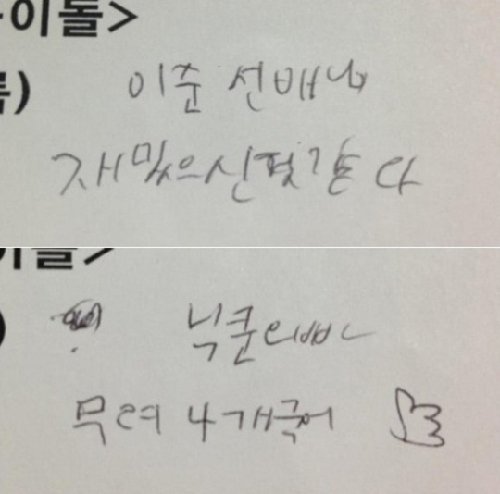 이돌>
)
이준 선배님
재밌으신것같다
이돌>
)
닉쿤
무려 4개국어